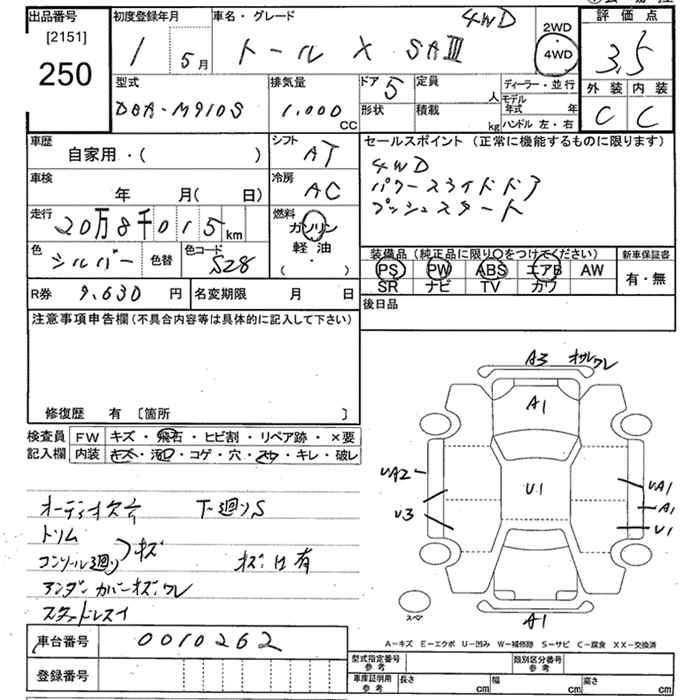 出品番号
[2151]
250
初度登録年月
1 5月
車名・グレード
4WD
トール X SAⅢ
2WD
4WD
評価点
3.5
外装 内装
C C
型式
DBA-M910S
排気量
1.000
CC
ドア 5
形状
定員
人
積載
kg
ディーラー・並行
モデル年式 年
ハンドル 左・右
車歴
自家用・( )
シフト
AT
車検
年 月( 日)
冷房
AC
走行
20万8千015km
燃料
ガソリン
軽油
( ・ )
色
シルバー
色替
色コード
S28
R券 9,630 円
名変期限 月 日
セールスポイント (正常に機能するものに限ります)
4WD
パワースライドドア
プッシュスタート
装備品 (純正品に限り○をつけてください)
新車保証書
PS PW ABS エアB AW
SR ナビ TV カワ
有・無
後日品
注意事項申告欄 (不具合内容等は具体的に記入して下さい)
修復歴 有 [箇所 ]
検査員
記入欄
FW キズ・飛石・ヒビ割・リペア跡・×要
内装 キズ・汚レ・コゲ・穴・スレ・キレ・破レ
オーディオ欠品 下廻りS
トリム
コンソール廻り キズ
キズ凹有
アンダーカバーキズ.ワレ
スタッドレスタイヤ
A3 キズ.ワレ
A1
UA2
U3
U1
UA1
A1
U1
A1
スペア
A-キズ E-エクボ U-凹み W-補修跡 S-サビ C-腐食 XX-交換済
車台番号 0010262
登録番号
型式指定番号
参考
類別区分番号
参考
車庫証明用
参考
長さ cm 幅 cm 高さ cm